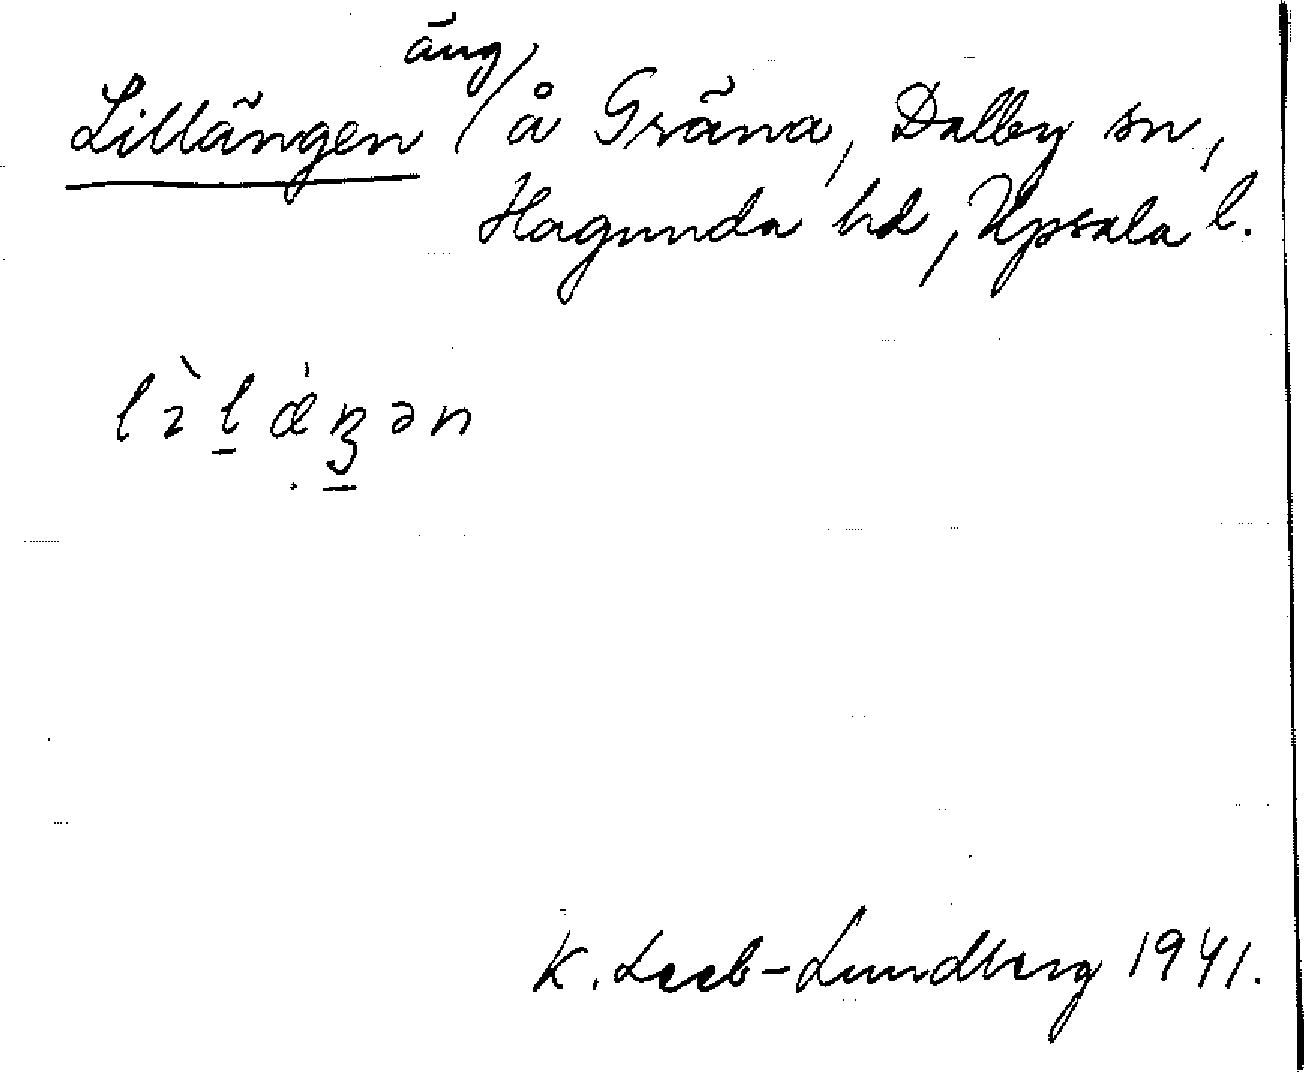 äng,
Lillängen / å Gräna, Dalby sn,
Hagunda hd, Upsala l.
lɪ̀l̠ǽ̣ŋ̠ən
K. Leeb-Lundberg 1941.